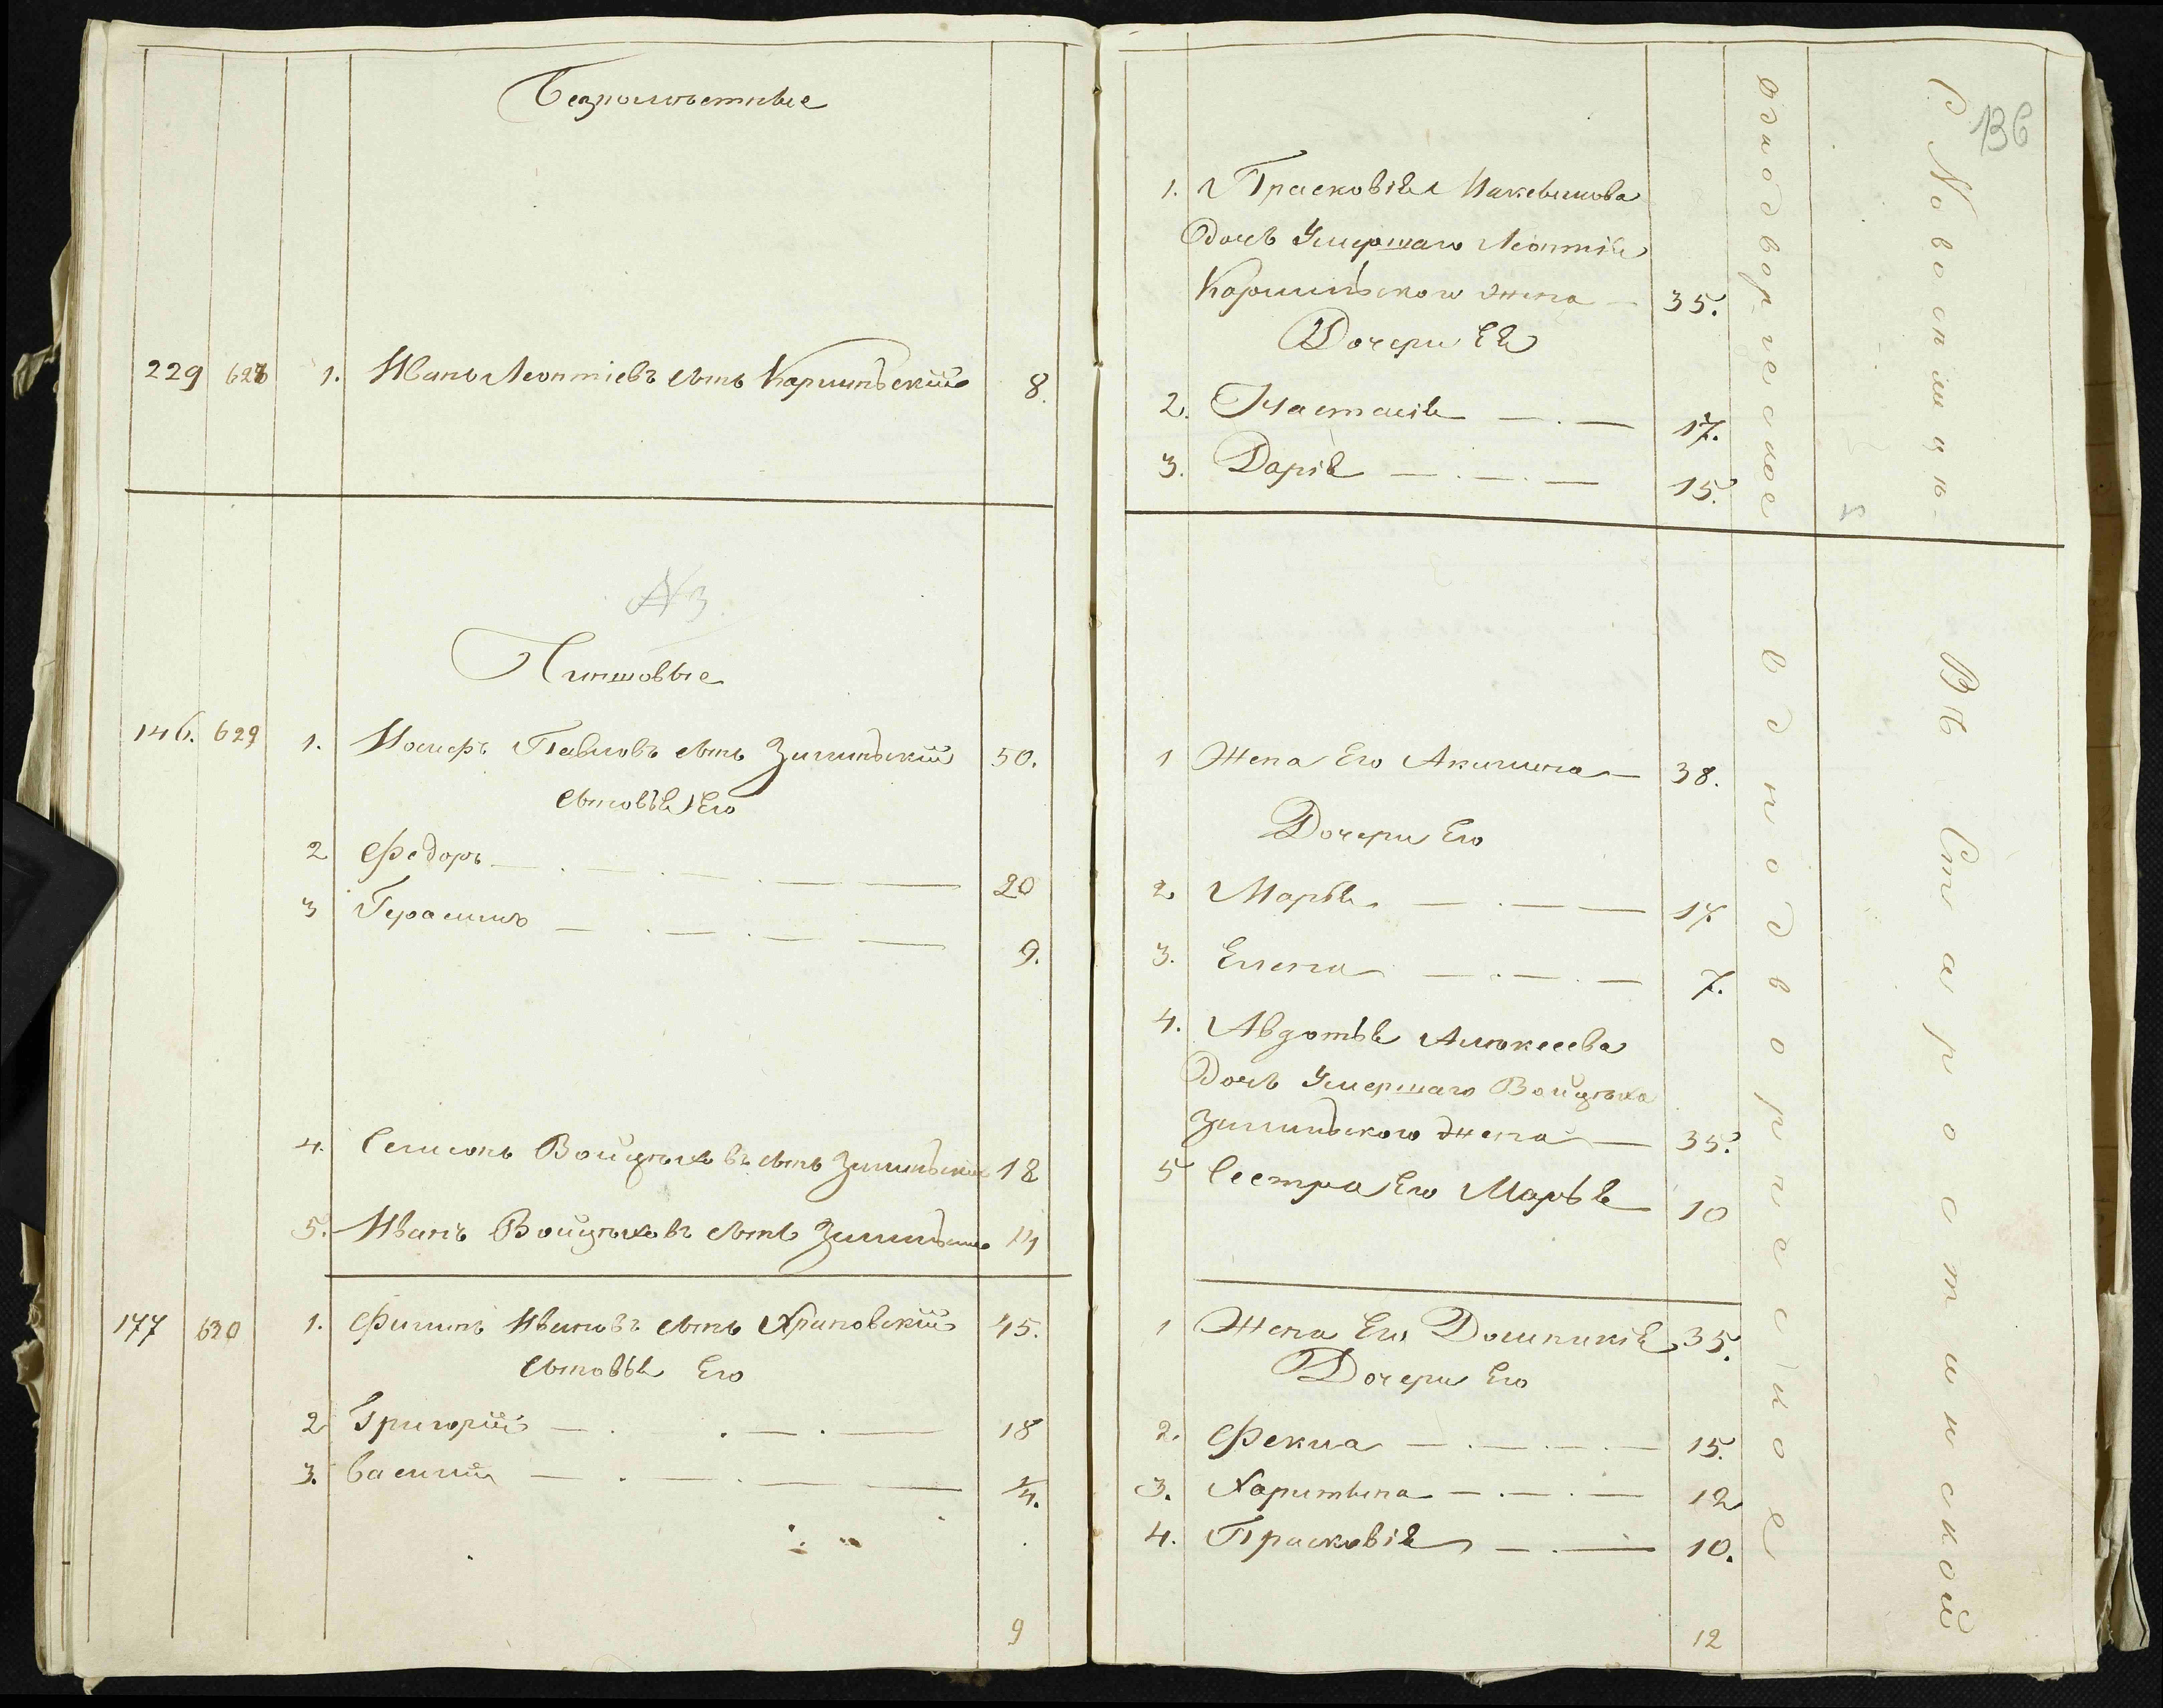 Безпоместные
229 628 1. Иванъ Леонтіевъ сынъ Каршинскій 8.
№ 3
Чиншовые
146. 629 1. Иосифъ Павловъ сынъ Зилинскій 50.
сыновья Его
2 Федоръ 20
3 Герасимъ 9.
4. Семионъ Войцеховъ сынъ Зилинскій 18
5. Иванъ Войцеховъ сынъ Зилинскій 14
177 630 1. Филипъ Ивановъ сынъ Храновскій 45.
сыновья Его
2 Григорій 18
3. Василий
9
136
1. Прасковія
дочь Умершаго Леонтія
Каршинского жена 35.
Дочери Ея
2. Настасія 17.
3. Дарія 15.
1 Жена Его Акилина 38.
Дочери Его
2. Марья 17
3. Елена 7.
4. Авдотья Алексеева
дочь Умершаго Войцеха
Зилинского жена 35.
5 Сестра Его Марья 10
1 Жена Его Домникія 35.
Дочери Его
2. Фекла 15.
3. Харитына 12
4. Прасковія 10.
12
однодворческое
однодворческое
Въ Старостинской